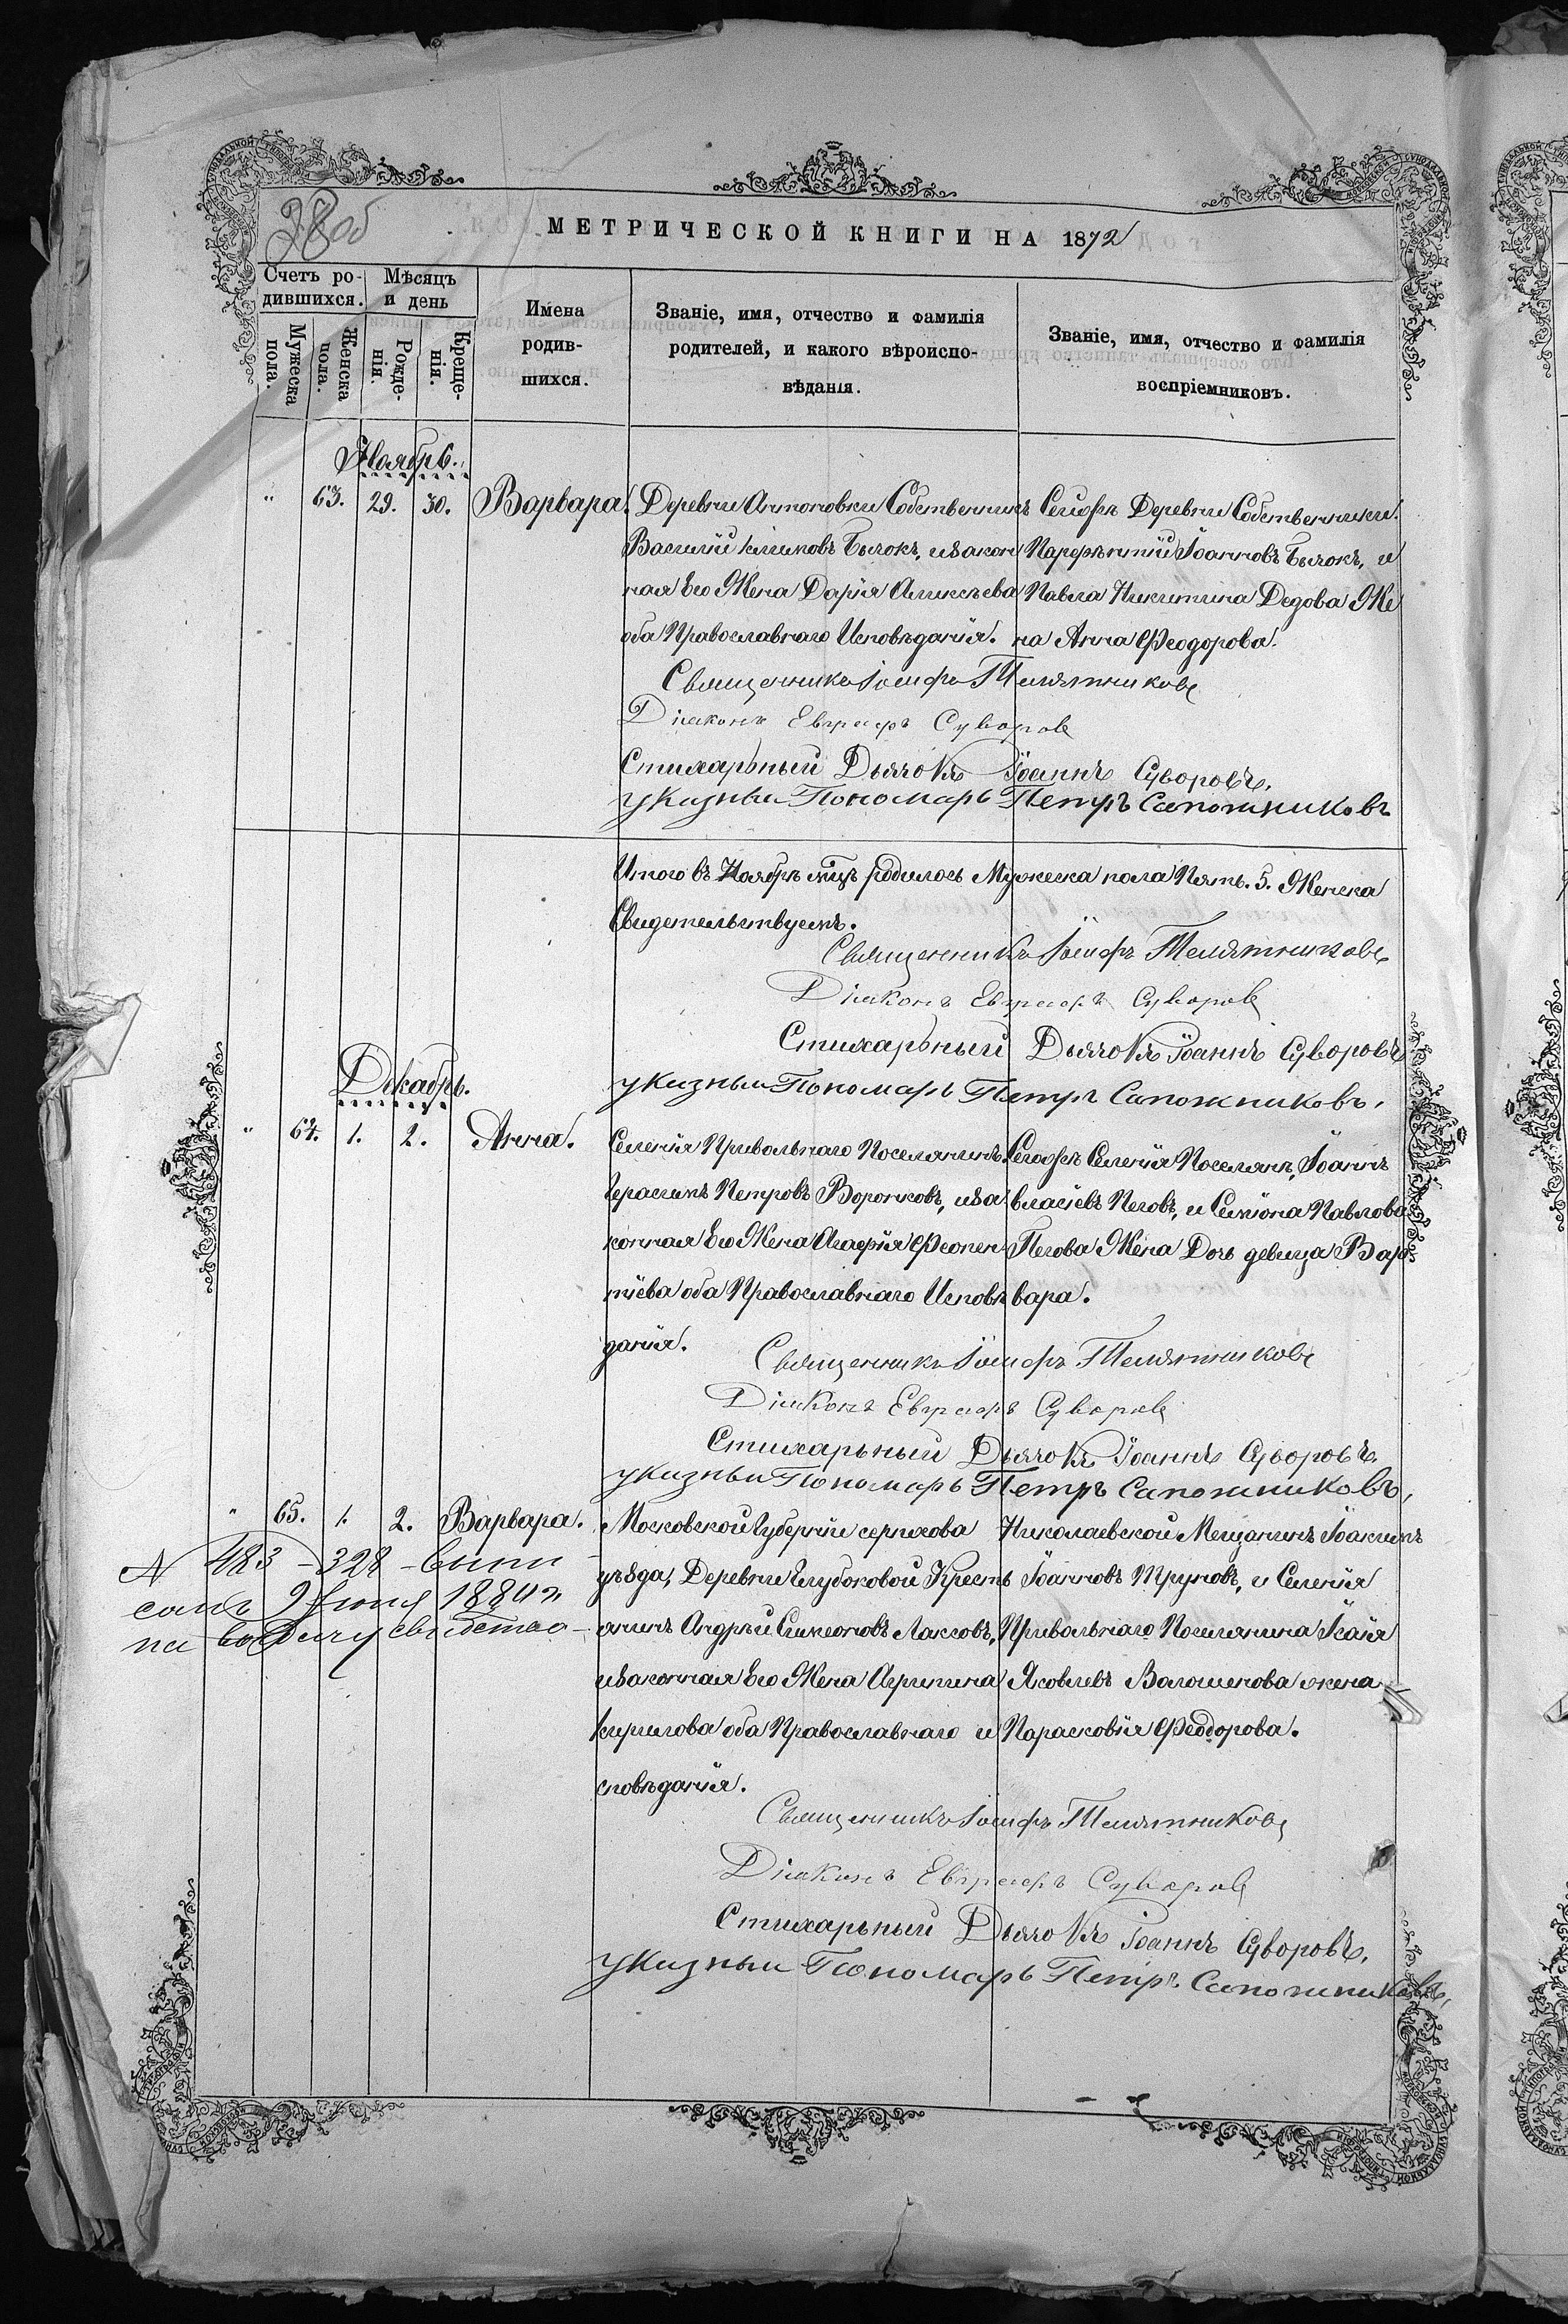 38об
МЕТРИЧЕСКОЙ КНИГИ НА 1872
Счетъ ро-
дившихся.
Мужеска
пола.
Женска
пола.
Мѣсяцъ
и день
Рожде-
нія.
Креще-
нія.
Имена
родив-
шихся.
Званіе, имя, отчество и фамилія
родителей, и какого вѣроиспо-
вѣданія.
Званіе, имя, отчество и фамилія
воспріемниковъ.
Ноябрь.
" 63. 29. 30. Варвара.
Деревни Антоновки Собственникъ
Василій Бычокъ, и закон
ная Его Жена Дарія Алексѣева
оба Православнаго Исповѣданія.
Сей же Деревни Собственники.
Парѳентій Іоанновъ Бычокъ, и
Павла Никитина Дедова Же
на Анна Ѳеодорова.
Священникъ Іосифъ Телятниковъ
Діаконъ Евграфъ Суворов
Стихарьный Дьячокъ Іоаннъ Суворовъ.
указный Пономарь Петръ Сапожниковъ
Итого въ Ноябрѣ мцѣ родилось Мужеска пола Пять. 5. Женска
Свидетельствуемъ.
Священникъ Іосифъ Телятниковъ
Діаконъ Евграфъ Суворов
Стихарьный Дьячокъ Іоаннъ Суворовъ
указный Пономарь Петръ Сапожниковъ.
Декабрь.
" 64. 1. 2. Анна.
Селенія Привольнаго Поселянинъ
Герасимъ Петровъ Воронковъ, и за
конная Его Жена Агафія Ѳеопен
тіева оба Православнаго Исповѣ
данія.
Сегожъ Селенія Поселян. Іоаннъ
Власіевъ Пеговъ, и Симіона Павлова
Пегова Жена Дочь девица Вар
вара.
Священникъ Іосифъ Телятниковъ
Діаконъ Евграфъ Суворов
Стихарьный Дьячокъ Іоаннъ Суворовъ.
указный Пономарь Петръ Сапожниковъ,
" 65. 1. 2. Варвара.
N 483 – 328 – выпи
санъ 9 Іюня 1884 г.
на выдачу свидетел–
Московской Губерніи серпхова
уѣзда, Деревни Глубоковой Кресть
янинъ Андрей Симеоновъ Лаксовъ,
и законная Его Жена Агрипина
Кирилова оба Православнаго и
сповѣданія.
Николаевской Мещанинъ Іоакимъ
Іоанновъ Труновъ, и Селенія
Привольнаго Поселянина Исаія
Яковлевъ Волошенова жена
Парасковія Ѳеодорова.
Священникъ Іосифъ Телятниковъ
Діаконъ Евграфъ Суворов
Стихарьный Дьячокъ Іоаннъ Суворовъ.
указный Пономарь Петръ Сапожниковъ,